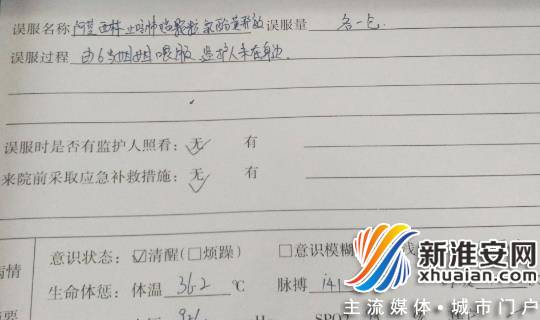 误服名称 阿莫西林 颗粒 误服量 各一包
误服过程 由6岁姐姐喂服 监护人未在身边
误服时是否有监护人照看：无 有
来院前采取应急补救措施：无 有
病情
意识状态：☑清醒(□烦躁) □意识模糊
生命体惩：体温 36.2 ℃ 脉搏 141
新淮安网
xhuaian.com
主流媒体·城市门户